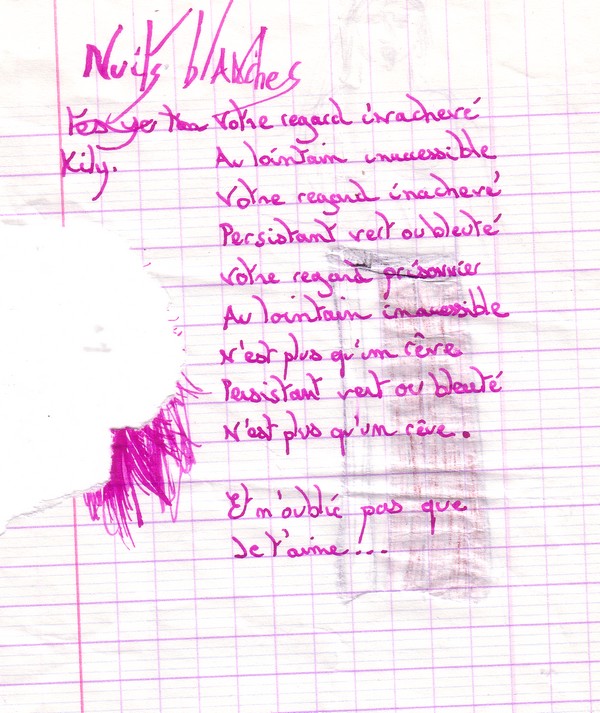 Nuits blanches
Votre regard inachevé
Kily. Au lointain inaccessible
Votre regard inachevé
Persistant vert ou bleuté
Votre regard prisonnier
Au lointain inaccessible
N'est plus qu'un rêve
Persistant vert ou bleuté
N'est plus qu'un rêve.
Et n'oublie pas que
Je t'aime...